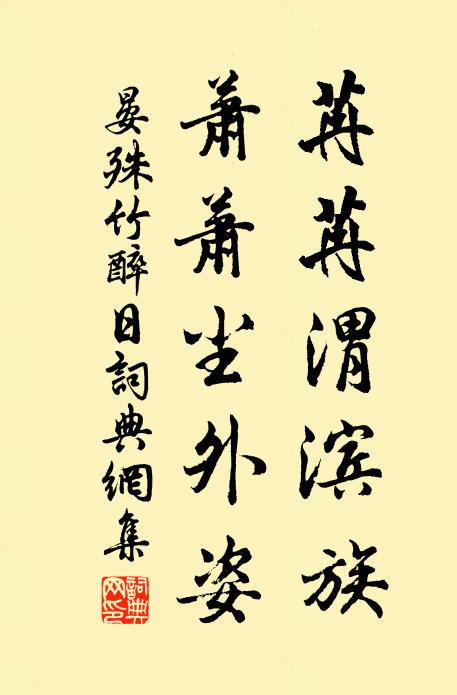 苒苒渭滨族
萧萧尘外姿
晏殊竹醉日詞典網集
詞典网印